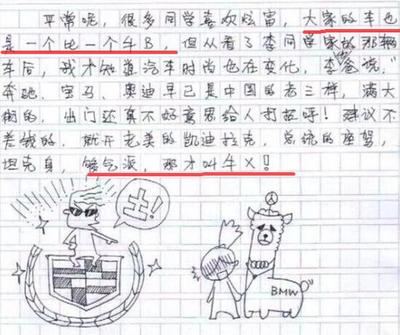 平常呢，很多同学喜欢炫富，大家的车也
是一个比一个牛B，但从看了李同学家的那辆
车后，我才知道汽车时尚也在变化，李爸说，"
奔驰、宝马、奥迪早已是中国的老三样，满大
街的，出门还真不好意思给人打招呼！建议不
差钱的，就开老美的凯迪拉克，总统的座驾，
坦克身，够气派，那才叫牛X！
土！
BMW